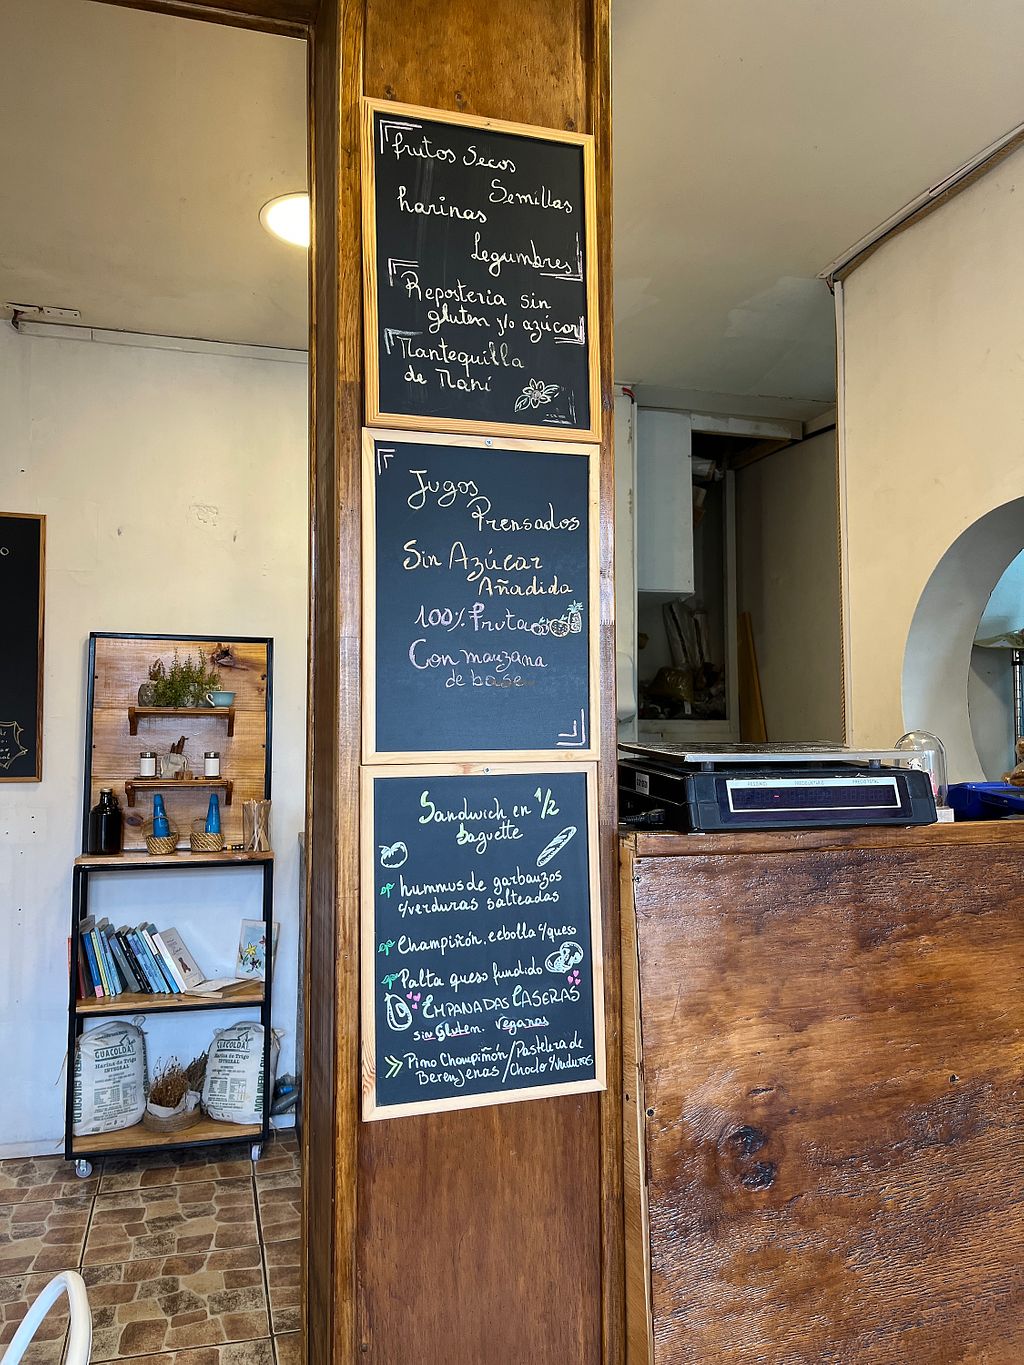 frutos Secos
Semillas
harinas
Legumbres
Repostería sin
gluten y/o azúcar
Mantequilla
de Maní
Jugos
Prensados
Sin Azúcar
Añadida
100% Fruta
Con manzana
de base
Sandwich en 1/2
baguette
hummus de garbanzos
c/verduras salteadas
Champiñón, cebolla c/queso
Palta queso fundido
EMPANADAS CASERAS
sin Gluten. Veganas
Pino Champiñón/Pastelera de
Berenjenas/Choclo c/Verduras
GUACOLDA
Harina de Trigo
INTEGRAL
GUACOLDA
Harina de Trigo
INTEGRAL